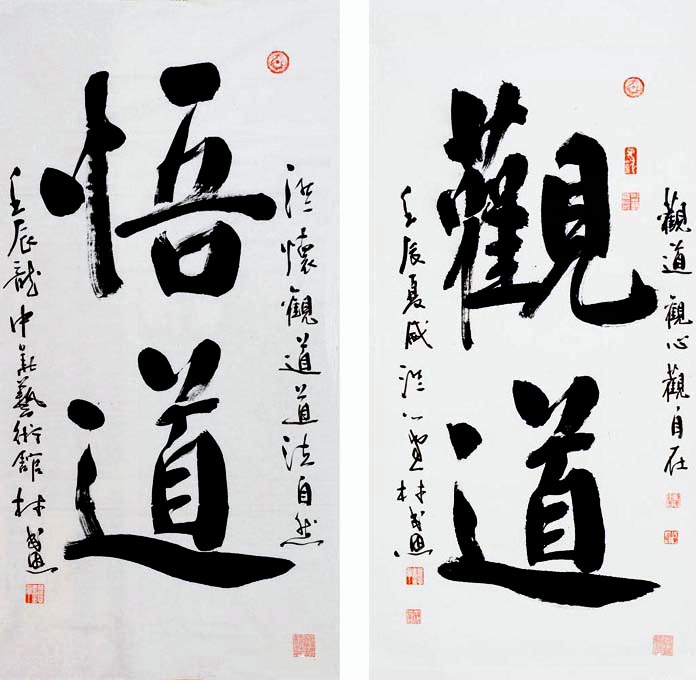 觀道觀心觀自在
觀道
壬辰夏 澄心堂林
澄懷觀道道法自然
悟道
壬辰龍中 藝術館林